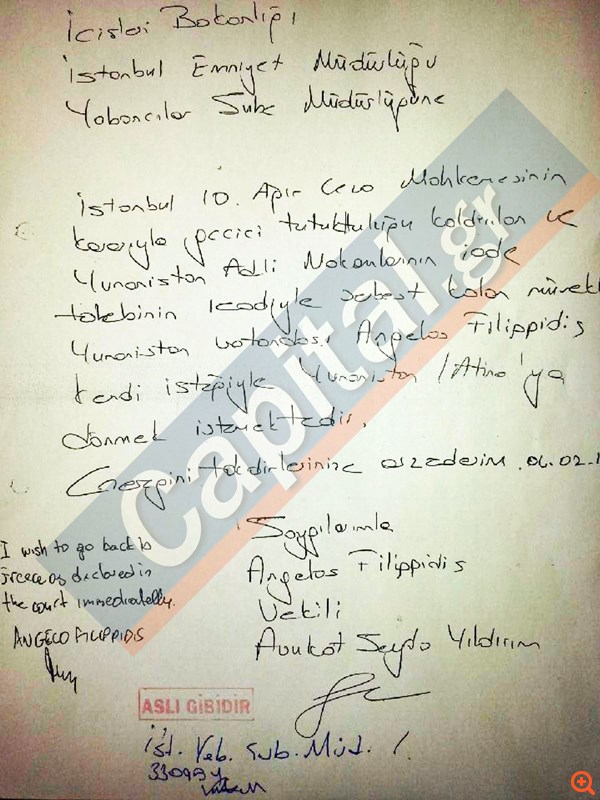 İçişleri Bakanlığı
İstanbul Emniyet Müdürlüğü
Yabancılar Şube Müdürlüğüne
İstanbul 10. Ağır Ceza Mahkemesinin
kararıyla geçici tutukluluğu kaldırılan ve
Yunanistan Adli Makamlarının iade
talebinin icadiyle serbest kalan müvekk
Yunanistan vatandaşı Angelos Filippidis
kendi isteğiyle Yunanistan / Atina'ya
dönmek istemektedir.
Gereğini takdirlerinize arzederim. 06.02.1
Saygılarımla
Angelos Filippidis
Vekili
Avukat Seyda Yıldırım
I wish to go back to
Greece as declared in
the court immediatelly.
ANGELO FILIPPIDIS
ASLI GİBİDİR
İst. Yab. Şub. Müd.
Capital.gr